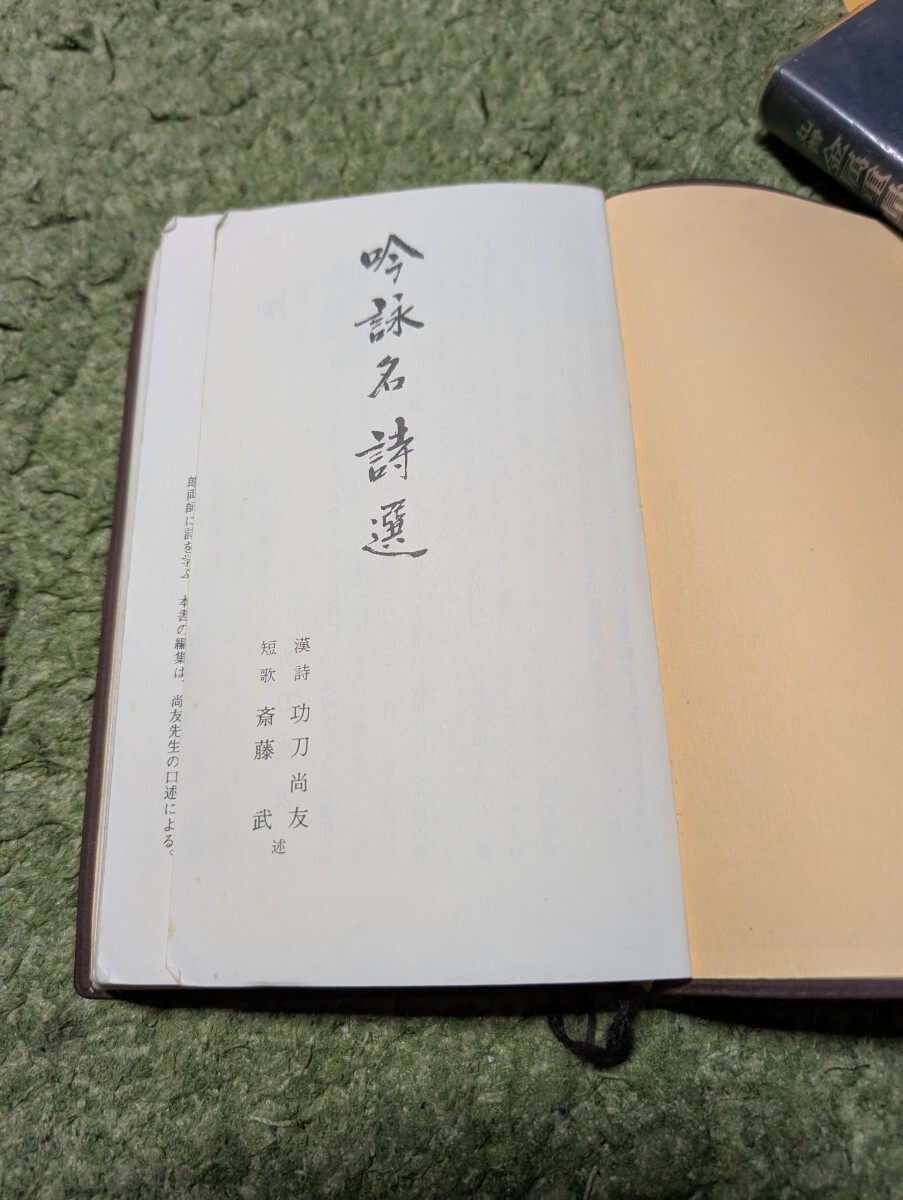 吟詠名詩選
漢詩 功刀尚友
短歌 斎藤 武
述
郎両師に詩を学ぶ 本書の編集は、尚友先生の口述による。